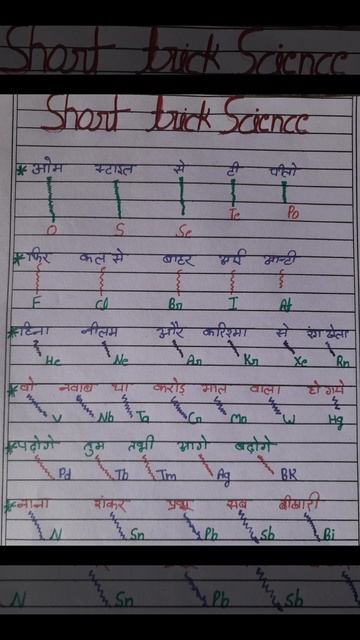 Short trick Science
Short trick Science
* ओम स्टाइल से टी पीलो
O S Se Te Po
* फिर कल से बाहर आई आन्टी
F Cl Bn I At
* हिना नीलम और करिश्मा से रंग खेला
He Ne An Kn Xe Rn
* वो नवाब था करोड़ माल वाला हो गये
V Nb Ta Cn Mn W Hg
* पढ़ोगे तुम तभी आगे बढ़ोगे
Pd Tb Tm Ag BK
* नाना शंकर प्रभु सब बीमारी
N Sn Pb Sb Bi
N Sn Pb Sb